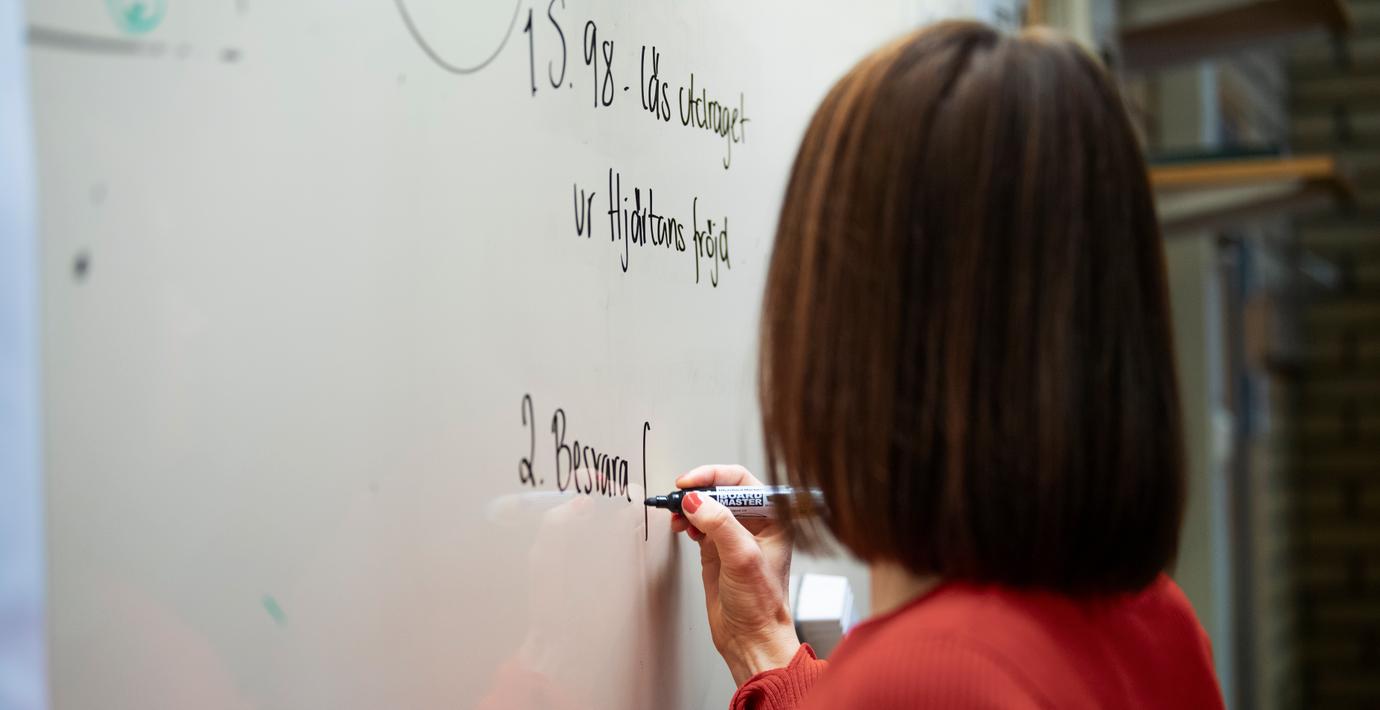 1 S. 98 - läs utdraget
ur Hjärtans fröjd
2. Besvara f
BOARD
MASTER